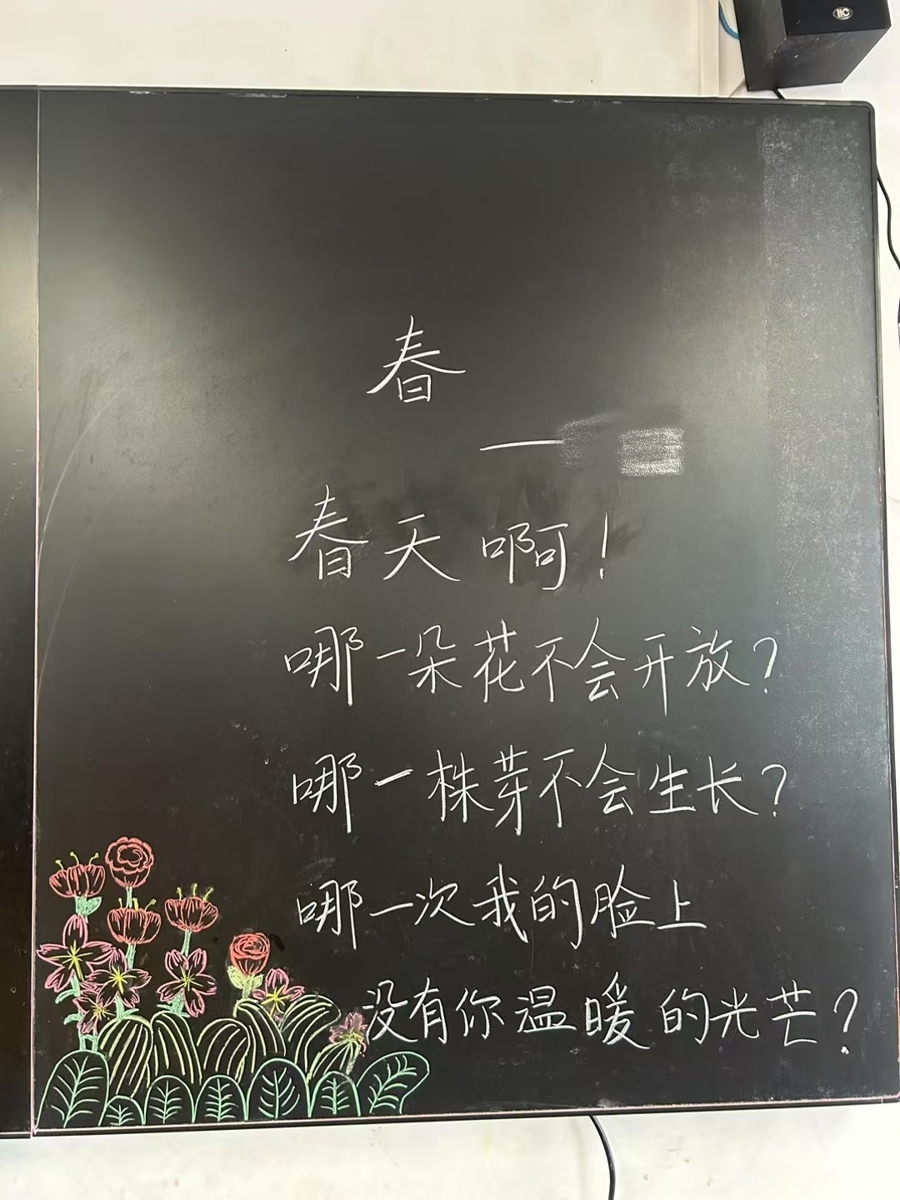 春
——
春天啊！
哪一朵花不会开放？
哪一株芽不会生长？
哪一次我的脸上
没有你温暖的光芒？